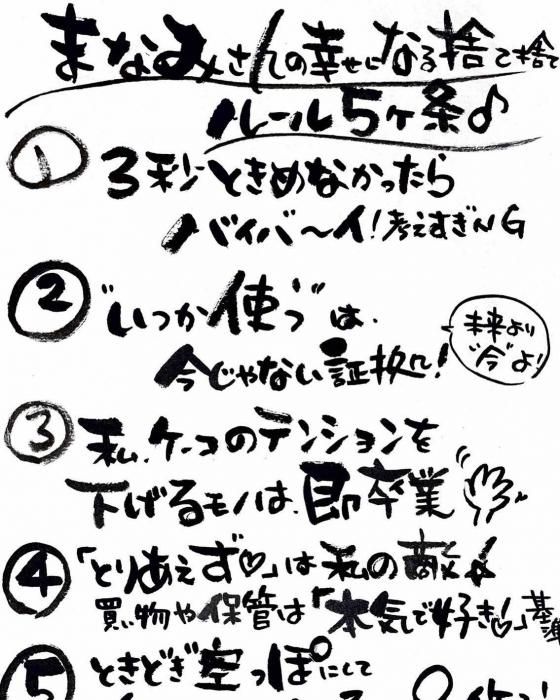 まなみさんの幸せになる捨て捨て
ルール5ヶ条♪
① 3秒ときめなかったら
バイバ〜イ!考えすぎNG
② "いつか使う"は、
今じゃない証拠!
未来より
"今"よ!
③ 私、ケーコのテンションを
下げるモノは、即卒業
④ 「とりあえず♡」は私の敵
買い物や保管は「本気で好き♡」基準
⑤ ときどき空っぽにして